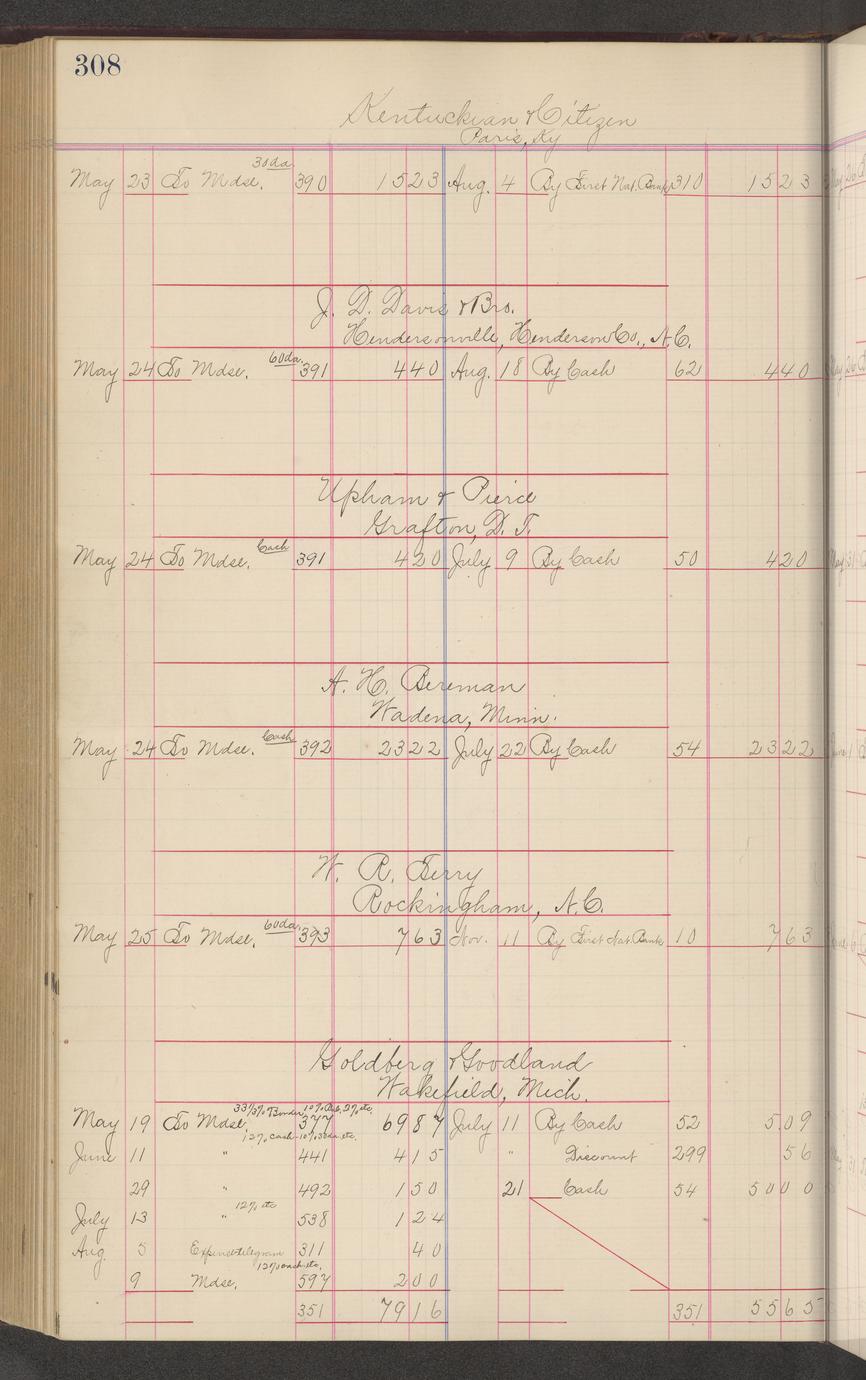 308
Kentuckian & Citizen
Paris, Ky
30da.
May 23 To Mdse. 390 1523 Aug. 4 By First Nat. Bank 310 1523
J. D. Davis & Bro.
Hendersonville, Henderson Co., N.C.
60da.
May 24 To Mdse. 391 440 Aug. 18 By Cash 62 440
Upham & Pierce
Grafton, D. T.
Cash
May 24 To Mdse. 391 420 July 9 By Cash 50 420
A. H. Bereman
Wadena, Minn.
Cash
May 24 To Mdse. 392 2322 July 22 By Cash 54 2322
W. R. Terry
Rockingham, N.C.
60da.
May 25 To Mdse. 393 763 Nov. 11 By First Nat. Bank 10 763
Goldberg & Goodland
Wakefield, Mich.
33⅓% 10% 2% etc.
May 19 To Mdse. 377 6987 July 11 By Cash 52 509
12% cash - 10% 30da. etc.
June 11 " 441 415 " Discount 299 56
29 " 492 150 21 Cash 54 5000
12% etc
July 13 " 538 124
Aug. 5 Expense telegram 311 40
12% cash etc.
9 Mdse. 597 200
351 7916 351 5565